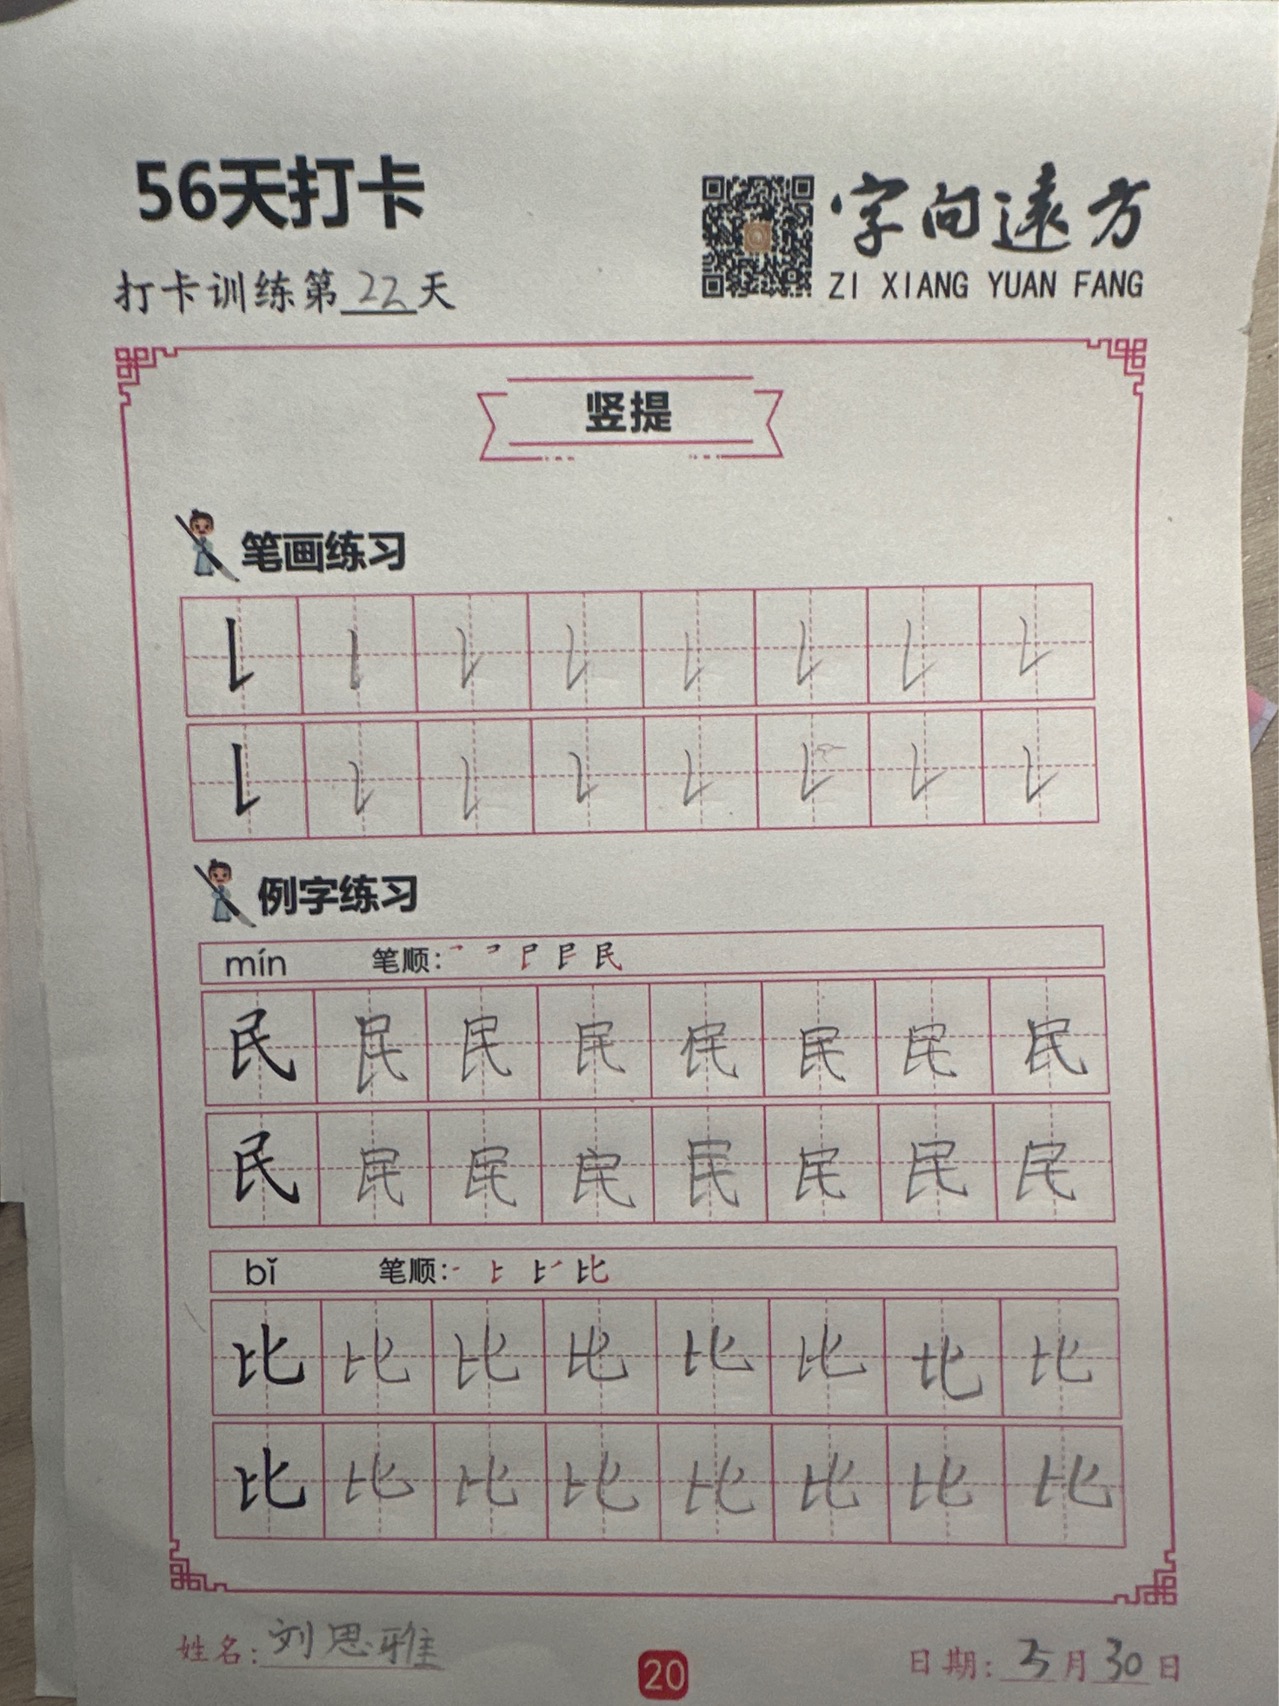 56天打卡
字向遠方
ZI XIANG YUAN FANG
打卡训练第22天
竖提
笔画练习
例字练习
mín 笔顺:
民民民民民民民民
民民民民民民民民
bǐ 笔顺:
比比比比比比比比
比比比比比比比比
姓名:刘思雅
20
日期:5月30日